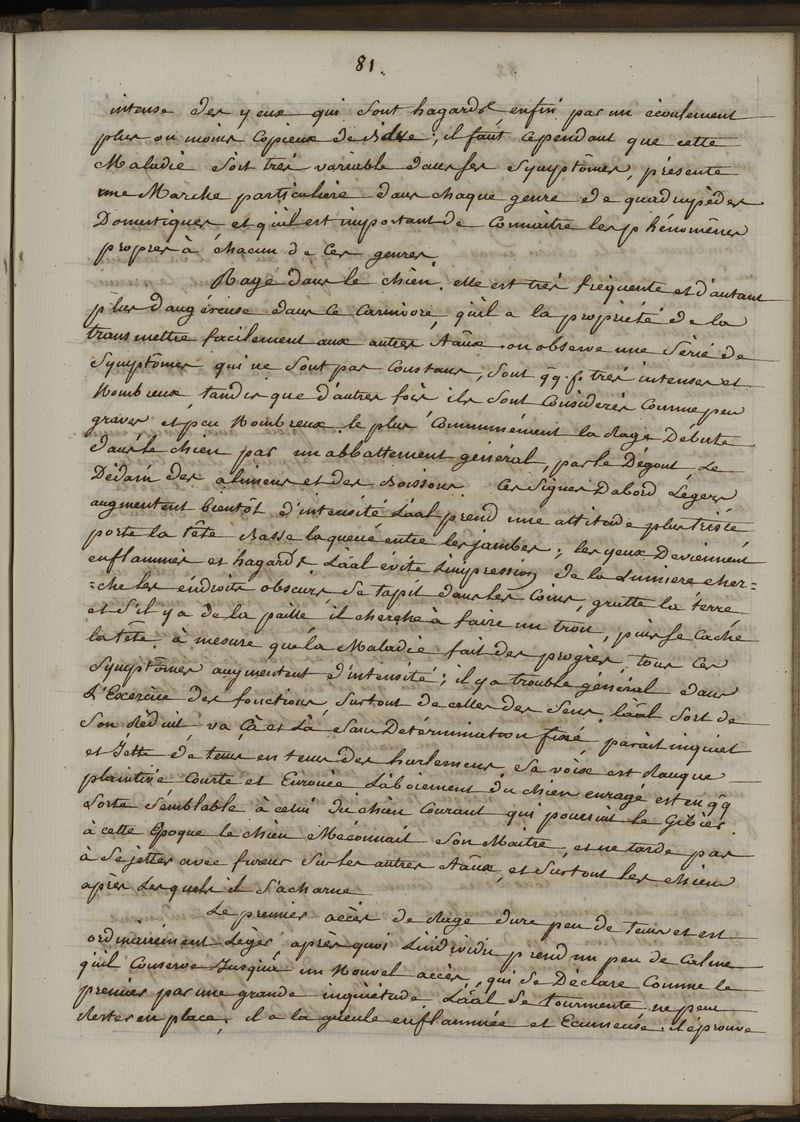 81.
intense des yeux qui sont hagards enfin par un écoulement
plus ou moins Copieux de Bave ; il faut cependant que cette
Maladie soit très variable dans ses Symptômes, présente
une Marche particulière dans chaque genre de quadrupèdes
Domestiques et qu'il est important de Connaitre les phénomènes
propres à chacun de Ces genres
Rage dans le chien. elle est très fréquente et d'autant
plus dangéreuse dans ce Carnivore qu'il a la propriété de la
transmettre facilement aux autres Aāux. on observe une Série de
Symptômes qui ne sont pas Constans, sont qq. f. très intenses et
Nombreux, tandis que d'autres fois ils sont Considérés Comme peu
graves et peu Nombreux. le plus Communément la Rage Débute
dans le chien par un abbattement général, par le Dégout, Le
Dédain des alimens et des Boissons Ces Signes Dabord Légers
augmentent bientôt d'intensité L'aāl prend une attitude plus triste
porte la tête Basse la queue entre les jambes ; les yeux Deviennent
enflammés et hagards L'aāl évite L'impression de la Lumiere cher=
=che les éndroits obscurs se tapit dans les Coins, gratte la terre
et S'il y a de la paille il cherche à faire un trou, puis se Cache
la tête à mesure que la Maladie fait des progrès, tous Ces
Symptômes augmentent d'intensité ; il y a trouble général dans
L'Exercice des fonctions Surtout de celles des Sens. L'aāl Sort de
Son Réduit va Cà et Là Sans Détermination fixé, parait inquiet
et Jette de tems en tems des hurlemens, Sa voix est Rauque
plaintive Courte et Enrouée L'aboiement du chien enragé est en qq
Sorte Sémblable à celui du chien Courant qui poursuit le Gibier.
à cette Epoque le chien Méconnait Son Maitre, et ne tarde pas
à Se jetter avec fureur Sur les autres Aāux, et Surtout les chiens
après Lesquels il S'acharne
Le premier accès de Rage dure peu de tems et est
ordinairement Léger après quoi L'individu prend un peu de Calme
qu'il Conserve Jusqu'à un Nouvel accès, qui se Déclare Comme le
premier par une grande inquiétude. L'aāl Se tourmente ne peut
Rester en place, il a la gueule enflammée et Ecumeuse. il éprouve